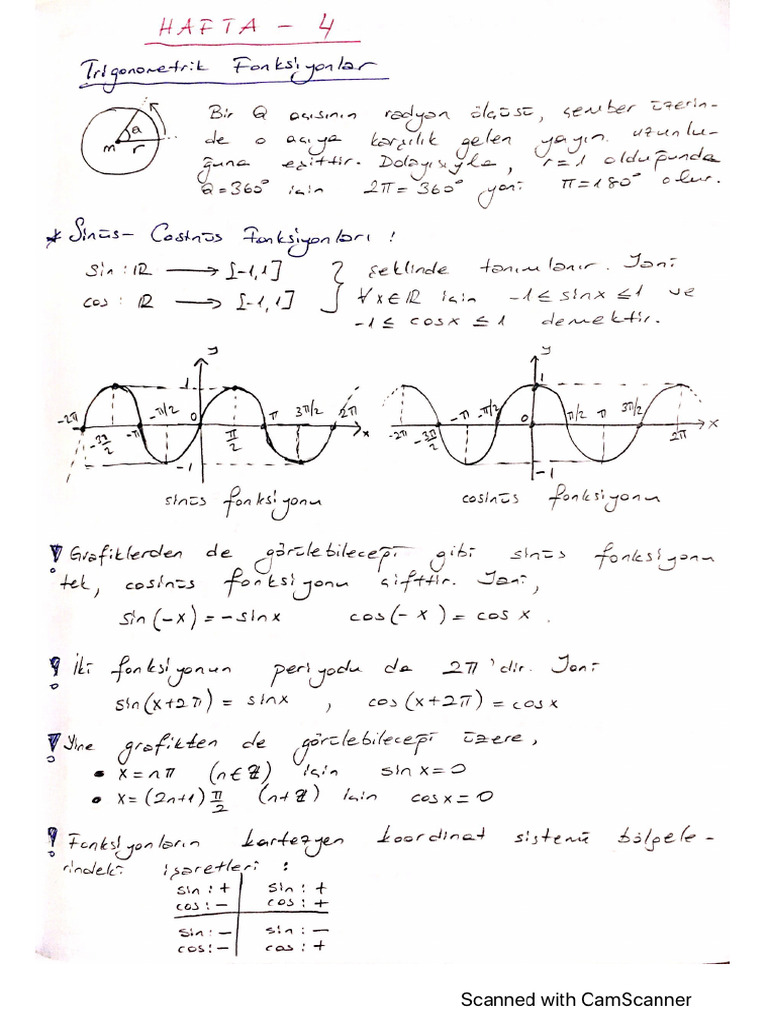 HAFTA - 4
Trigonometrik Fonksiyonlar
Bir Q açısının radyan ölçüsü, çember üzerin-
de o açıya karşılık gelen yayın uzunlu-
ğuna eşittir. Dolayısıyla, r=1 olduğunda
Q=360° için 2π=360° yani π=180° olur.
m r a
* Sinüs - Cosinüs Fonksiyonları :
sin : ℝ → [-1,1] } şeklinde tanımlanır. Yani
cos : ℝ → [-1,1] } ∀x∈ℝ için -1 ≤ sinx ≤ 1 ve
-1 ≤ cosx ≤ 1 demektir.
y y
1 1
-2π -3π/2 -π -π/2 0 π/2 π 3π/2 2π x
-2π -3π/2 -π -π/2 0 π/2 π 3π/2 2π x
-1 -1
sinüs fonksiyonu cosinüs fonksiyonu
! Grafiklerden de görülebileceği gibi sinüs fonksiyonu
tek, cosinüs fonksiyonu çifttir. Yani,
sin(-x) = -sinx cos(-x) = cos x .
! İki fonksiyonun periyodu da 2π'dir. Yani
sin(x+2π) = sinx , cos(x+2π) = cosx
! Yine grafikten de görülebileceği üzere,
• x=nπ (n∈ℤ) için sinx=0
• x=(2n+1)π/2 (n+ℤ) için cosx=0
! Fonksiyonların kartezyen koordinat sistemi bölgele-
rindeki işaretleri :
sin : + sin : +
cos : - cos : +
sin : - sin : -
cos : - cos : +
Scanned with CamScanner